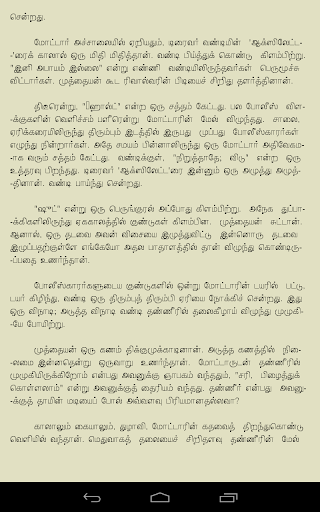 சென்றது.
மோட்டார் அச்சாலையில் ஏறியதும், டிரைவர் வண்டியின் 'ஆக்ஸிலேட்ட-
-'ரைக் காலால் ஒரு மிதி மிதித்தான். வண்டி பிய்த்துக் கொண்டு கிளம்பிற்று.
"இனி அபாயம் இல்லை" என்று எண்ணி வண்டியிலிருந்தவர்கள் பெருமூச்சு
விட்டார்கள். முத்தையன் கூட ரிவால்வரின் பிடியைச் சிறிது தளர்த்தினான்.
திடீரென்று, "ஹோல்ட்" என்ற ஒரு சத்தம் கேட்டது. பல போலீஸ் விள-
-க்குகளின் வெளிச்சம் பளீரென்று மோட்டாரின் மேல் விழுந்தது. சாலை,
ஏரிக்கரையிலிருந்து திரும்பும் இடத்தில் இருபது முப்பது போலீஸ்காரர்கள்
எழுந்து நின்றார்கள். அதே சமயம் பின்னாலிருந்து ஒரு மோட்டார் அதிவேகம-
-ாக வரும் சத்தம் கேட்டது. வண்டிக்குள், "நிறுத்தாதே; விடு" என்ற ஒரு
உத்தரவு பிறந்தது. டிரைவர் 'ஆக்ஸிலேட்ட'ரை இன்னும் ஒரு அமுத்து அமுத்-
-தினான். வண்டி பாய்ந்து சென்றது.
"ஷுட்" என்று ஒரு பெருங்குரல் அப்போது கிளம்பிற்று. அநேக துப்பா-
-க்கிகளிலிருந்து ஏககாலத்தில் குண்டுகள் கிளம்பின. முத்தையன் சுட்டான்.
ஆனால், ஒரு தடவை அவன் விசையை இழுத்துவிட்டு இன்னொரு தடவை
இழுப்பதற்குள்ளே எங்கேயோ அதல பாதாளத்தில் தான் விழுந்து கொண்டிரு-
-ப்பதை உணர்ந்தான்.
போலீஸ்காரர்களுடைய குண்டுகளில் ஒன்று மோட்டாரின் டயரில் பட்டு,
டயர் கிழிந்து, வண்டி ஒரு திரும்புத் திரும்பி ஏரியை நோக்கிச் சென்றது. இது
ஒரு விநாடி; அடுத்த விநாடி வண்டி தண்ணீரில் தலைகீழாய் விழுந்து முழுகி-
-யே போயிற்று.
முத்தையன் ஒரு கணம் திக்குமுக்காடினான். அடுத்த கணத்தில் நிை-
-லமை இன்னதென்று ஒருவாறு உணர்ந்தான். மோட்டாருடன் தண்ணீரில்
முழுகியிருக்கிறோம் என்பது அவனுக்கு ஞாபகம் வந்ததும், "சரி, பிழைத்துக்
கொள்ளலாம்" என்று அவனுக்குத் தைரியம் வந்தது. தண்ணீர் என்பது அவனு-
-க்குத் தாயின் மடியைப் போல் அவ்வளவு பிரியமானதல்லவா?
காலாலும் கையாலும், துழாவி, மோட்டாரின் கதவைத் திறந்துகொண்டு
வெளியில் வந்தான். மெதுவாகத் தலையைச் சிறிதளவு தண்ணீரின் மேல்